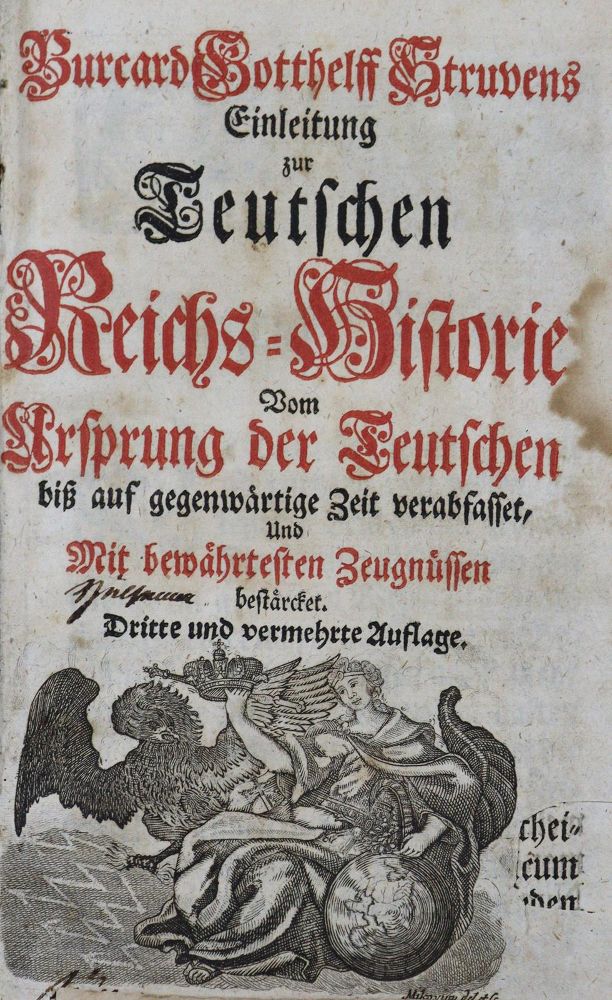 Burcard Gotthelff Struvens
Einleitung
zur
Teutschen
Reichs-Historie
Vom
Ursprung der Teutschen
biß auf gegenwärtige Zeit verabfasset,
Und
Mit bewährtesten Zeugnüssen
bestärcket.
Dritte und vermehrte Auflage.
chei-
cum
den